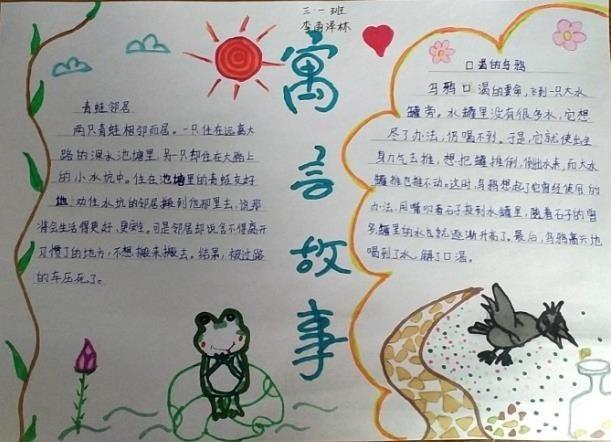 三·一班
李雨泽林
寓言故事
青蛙邻居
两只青蛙相邻而居。一只住在远离大
路的深水池塘里,另一只却住在大路上
的小水坑中。住在池塘里的青蛙友好
地劝住水坑的邻居搬到他那里去,说那
将会生活得更好,更安全。可是邻居却说舍不得离开
习惯了的地方,不想搬来搬去。结果,被过路
的车压死了。
口渴的乌鸦
乌鸦口渴的要命,飞到一只大水
罐旁。水罐里没有很多水,它想
尽了办法,仍喝不到。于是,它就使出全
身力气去推,想把罐推倒,倒出水来,而大水
罐推也推不动。这时,乌鸦想起了它曾经使用的
办法,用嘴叼着石子投到水罐里,随着石子的增
多,罐里的水也就逐渐升高了。最后,乌鸦高兴地
喝到了水,解了口渴。